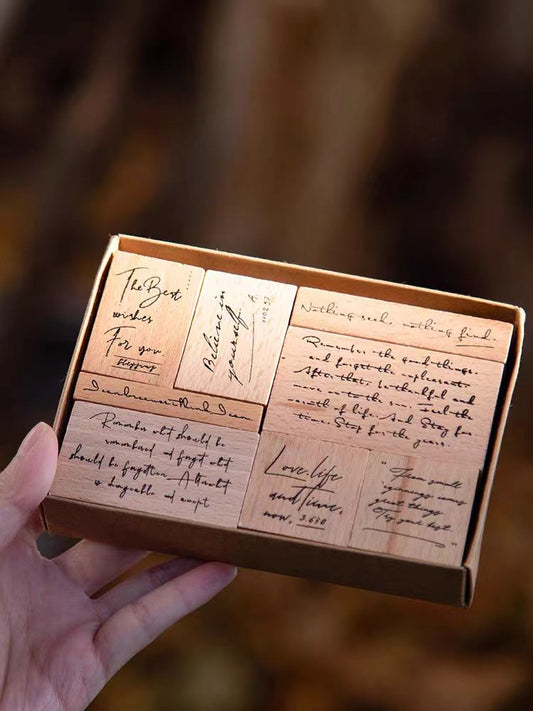 The Best
wishes
For you.
Believe in
yourself.
Nothing seek, nothing find.
Remember the good things,
and forget the
After that, be thankful and
move on to the Feel the
of life. And Stay for
time. Stay for the years.
Remember what should be
remembered, and forget what
should be forgotten. Alter what
is changeable, and accept
Love life
and Time,
now, 3.650
"From small
beginnings comes
great things
Try your best